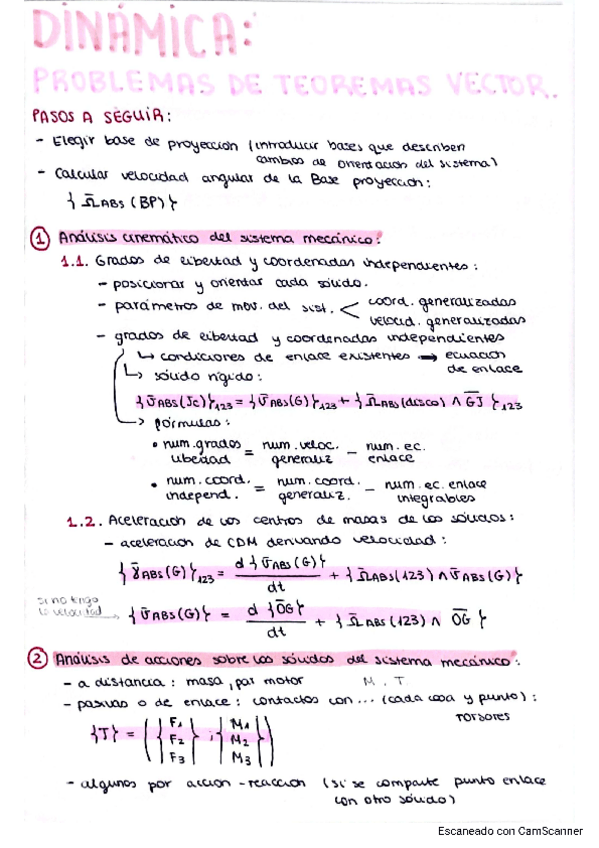 DINÁMICA:
PROBLEMAS DE TEOREMAS VECTOR.
PASOS A SEGUIR:
- Elegir base de proyección (introducir bases que describen
cambios de orientación del sistema)
- Calcular velocidad angular de la Base proyección:
{ Ω̄ABS (BP) }
① Análisis cinemático del sistema mecánico:
1.1. Grados de libertad y coordenadas independientes:
- posicionar y orientar cada sólido.
- parámetros de mov. del sist. < coord. generalizadas
velocid. generalizadas
- grados de libertad y coordenadas independientes
↳ condiciones de enlace existentes → ecuación
de enlace
↳ sólido rígido:
{ῡABS(Jc)}123 = {ῡABS(G)}123 + {Ω̄ABS(disco) ∧ GJ}123
↳ fórmulas:
• num. grados libertad = num. veloc. generaliz - num. ec. enlace
• num. coord. independ. = num. coord. generaliz. - num. ec. enlace integrables
1.2. Aceleración de los centros de masas de los sólidos:
- aceleración de CDM derivando velocidad:
{γ̄ABS(G)}123 = d{ῡABS(G)}/dt + {Ω̄ABS(123) ∧ ῡABS(G)}
si no tengo
la velocidad → {ῡABS(G)} = d{OG}/dt + {Ω̄ABS(123) ∧ OG}
② Análisis de acciones sobre los sólidos del sistema mecánico:
- a distancia: masa, par motor M. T
- pasivas o de enlace: contactos con... (cada cosa y punto):
torsores
{J} = ({F1 F2 F3} ; {M1 M2 M3})
- algunos por acción-reacción (si se comparte punto enlace
con otro sólido)
Escaneado con CamScanner